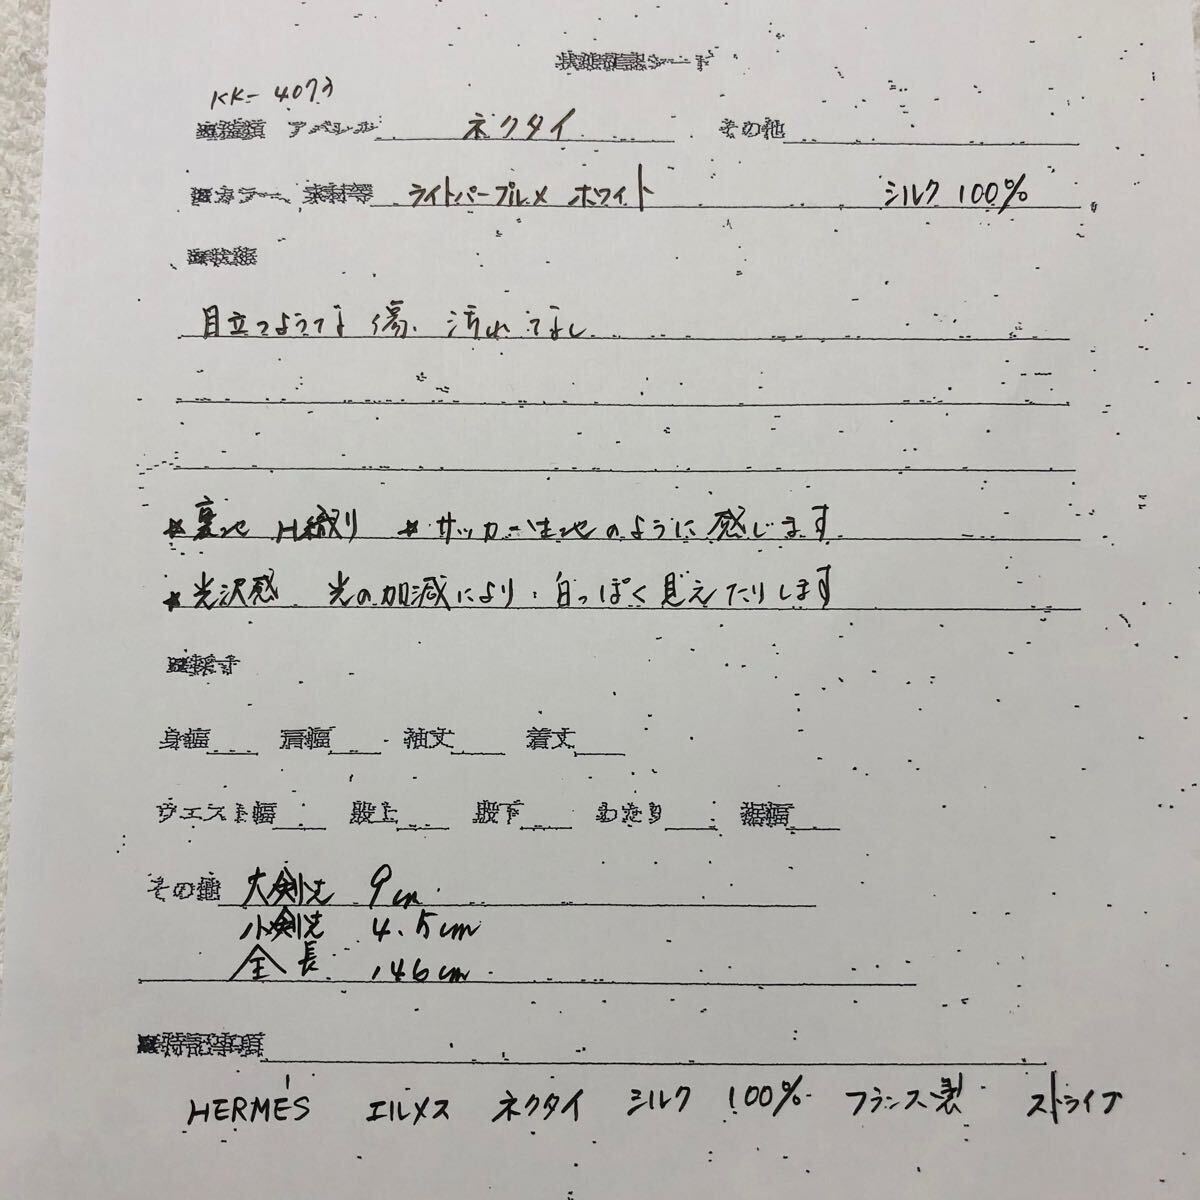 状態確認シート
KK-4073
■種類 アパレル ネクタイ その他
■カラー、素材等 ライトパープル× ホワイト シルク 100%
■状態
目立つような 傷、汚れ なし
★裏地 H織り ★サッカー生地のように感じます
★光沢感 光の加減により、白っぽく見えたりします
■採寸
身幅 肩幅 袖丈 着丈
ウエスト幅 股上 股下 わたり 裾幅
その他 大剣先 9cm
小剣先 4.5cm
全長 146cm
■特記事項
HERMÈS エルメス ネクタイ シルク 100% フランス製 ストライプ